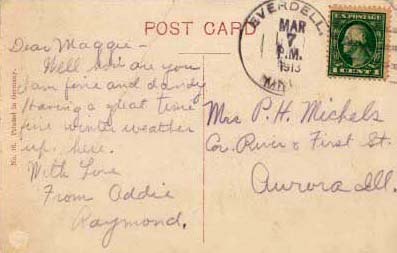 POST CARD
EVERDELL,
MAR
7
P.M.
1913
MINN
1 CENT 1
Dear Maggie -
Well how are you
I am fine and dandy
Having a great time
fine winter weather
up here.
With Love
From Addie
Raymond.
Mrs P. H. Michels
Cor. River & First St.
Aurora Ill.
Printed in Germany.